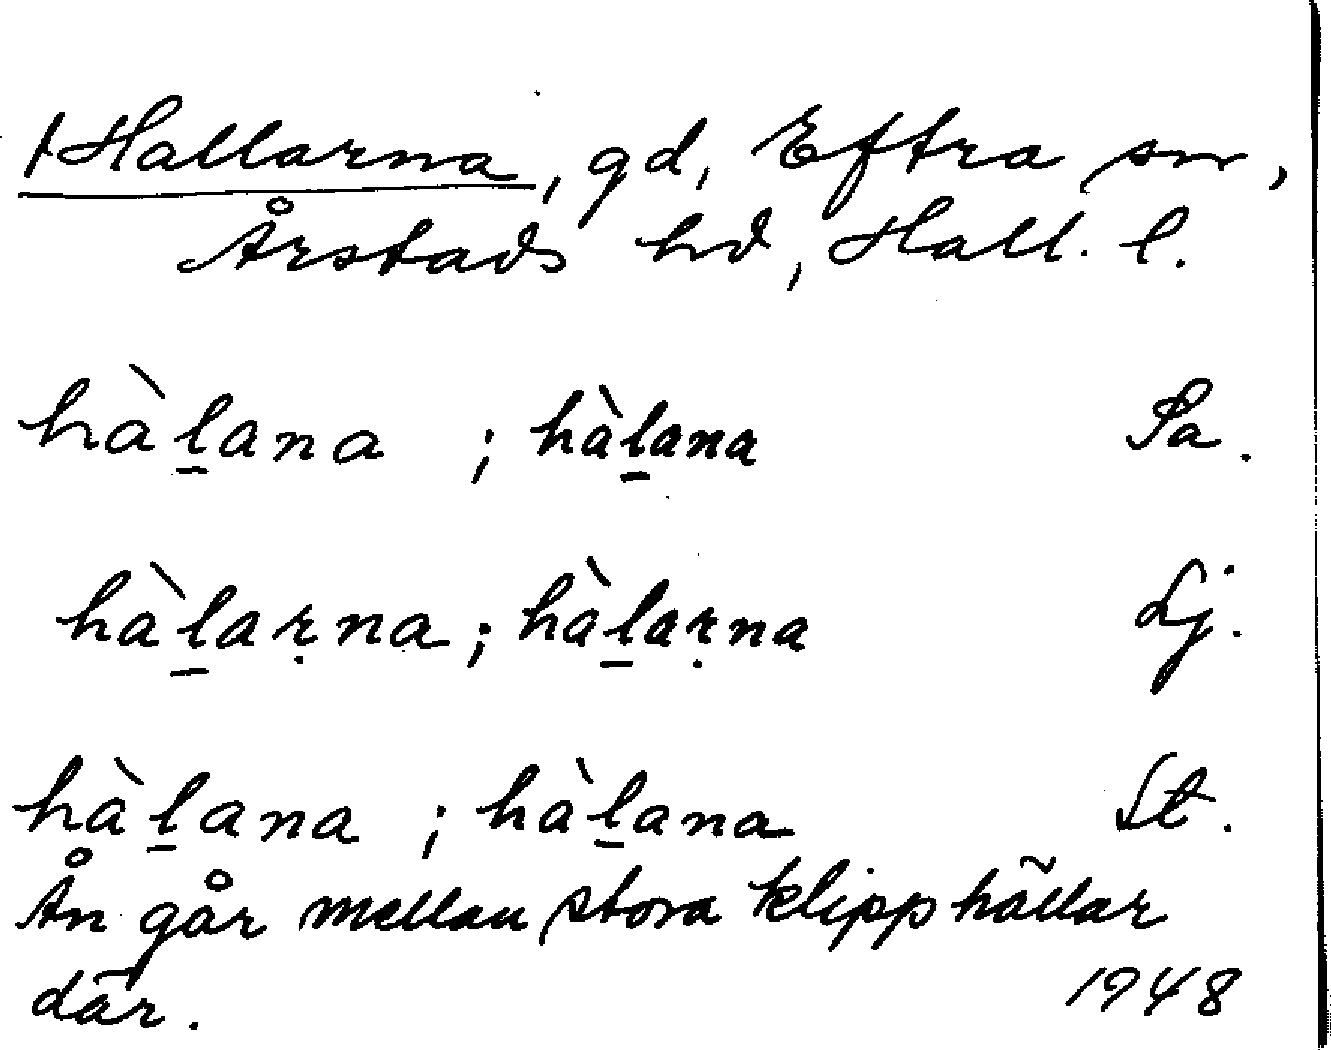 †Hallarna, gd, Eftra sn,
Årstads hd, Hall. l.
hàḻana ; hàḻana Sa.
hàḻaṛna ; hàḻaṛna Lj.
hàḻana ; hàḻana St.
Ån går mellan stora klipphällar
där. 1948